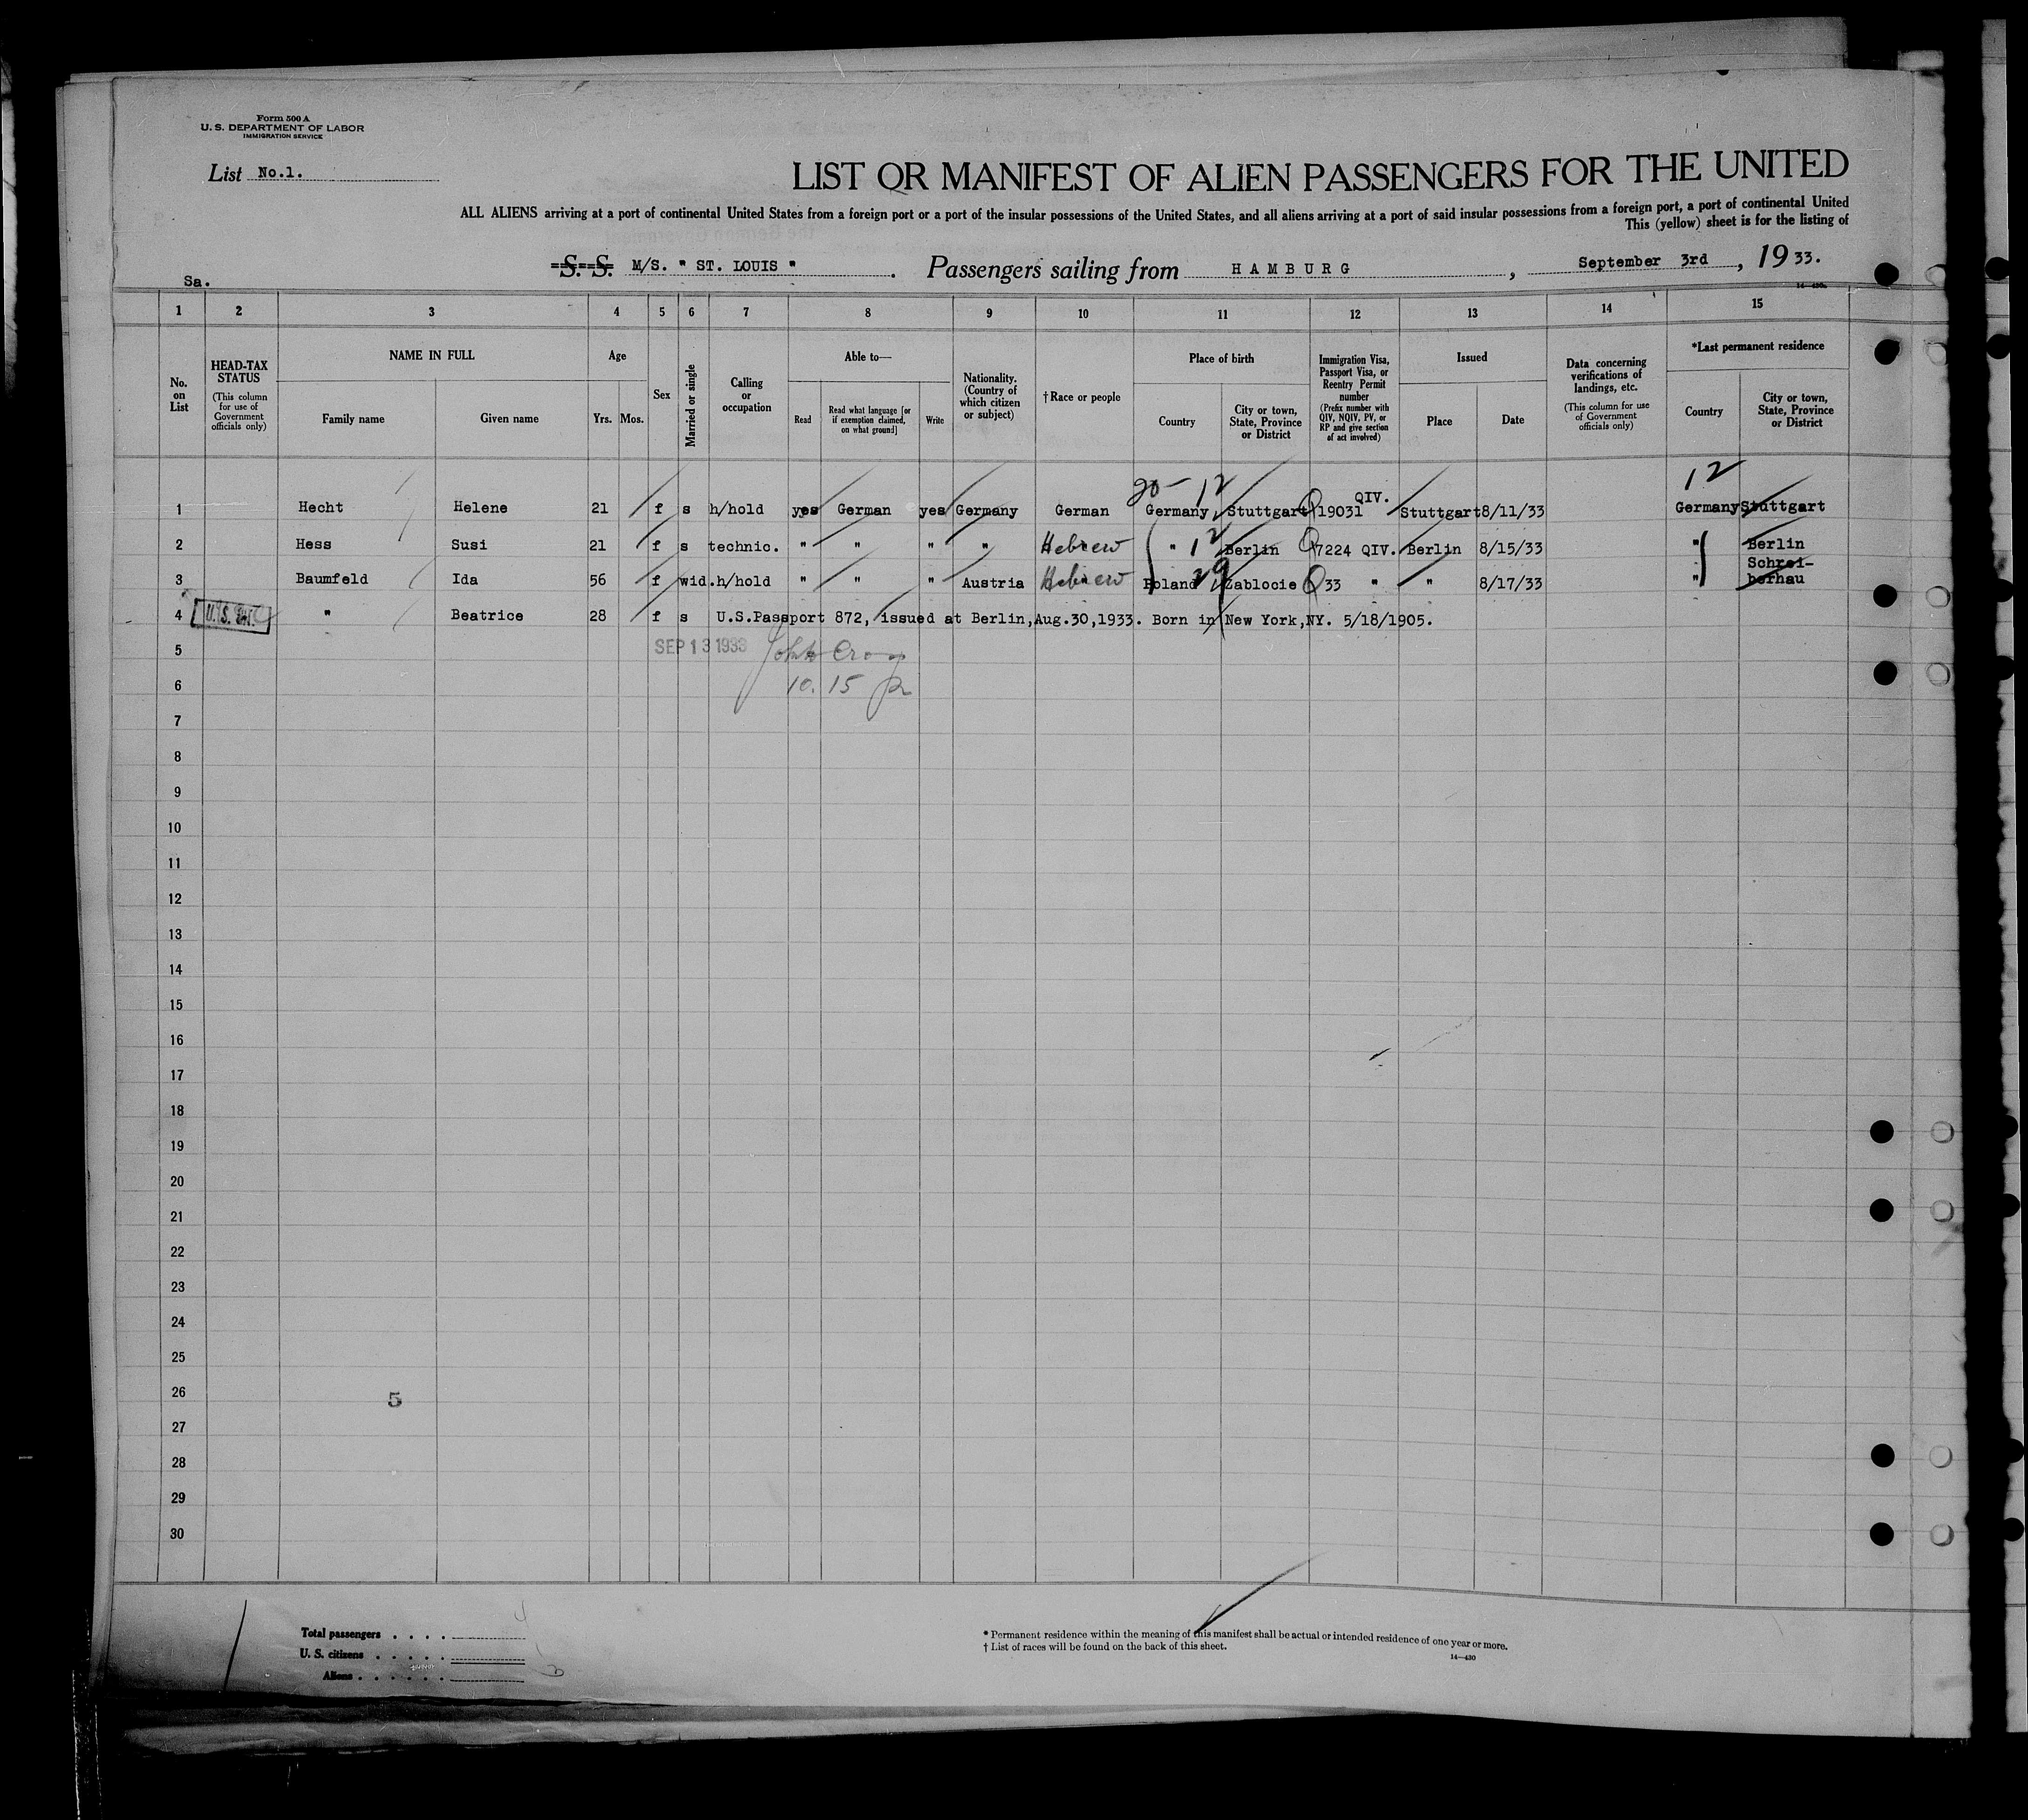 Form 500 A
U. S. DEPARTMENT OF LABOR
IMMIGRATION SERVICE
List No.1.
LIST OR MANIFEST OF ALIEN PASSENGERS FOR THE UNITED
ALL ALIENS arriving at a port of continental United States from a foreign port or a port of the insular possessions of the United States, and all aliens arriving at a port of said insular possessions from a foreign port, a port of continental United
This (yellow) sheet is for the listing of
Sa.
S. S. M/S. " ST. LOUIS " . Passengers sailing from HAMBURG , September 3rd , 19 33.
1 2 3 4 5 6 7 8 9 10 11 12 13 14 15
No. on List
HEAD-TAX STATUS (This column for use of Government officials only)
NAME IN FULL
Family name Given name
Age
Yrs. Mos.
Sex
Married or single
Calling or occupation
Able to—
Read Read what language [or if exemption claimed, on what ground] Write
Nationality. (Country of which citizen or subject)
†Race or people
Place of birth
Country City or town, State, Province or District
Immigration Visa, Passport Visa, or Reentry Permit number (Prefix number with QIV, NQIV, PV, or RP and give section of act involved)
Issued
Place Date
Data concerning verifications of landings, etc. (This column for use of Government officials only)
*Last permanent residence
Country City or town, State, Province or District
20- 12 12
1 Hecht Helene 21 f s h/hold yes German yes Germany German Germany Stuttgart Q 19031 QIV. Stuttgart 8/11/33 Germany Stuttgart
2 Hess Susi 21 f s technic. " " " " Hebrew " 12 Berlin Q 7224 QIV. Berlin 8/15/33 " Berlin
3 Baumfeld Ida 56 f wid. h/hold " " " Austria Hebrew Poland 29 Zablocie Q 33 " " 8/17/33 " Schrei-berhau
4 U.S. " Beatrice 28 f s U.S.Passport 872, issued at Berlin,Aug.30,1933. Born in New York,NY. 5/18/1905.
5 SEP 13 1933
6 10.15
7
8
9
10
11
12
13
14
15
16
17
18
19
20
21
22
23
24
25
26 5
27
28
29
30
Total passengers . . . . 4
U. S. citizens . . . . . 1
Aliens . . . . . . 3
* Permanent residence within the meaning of this manifest shall be actual or intended residence of one year or more.
† List of races will be found on the back of this sheet.
14—430